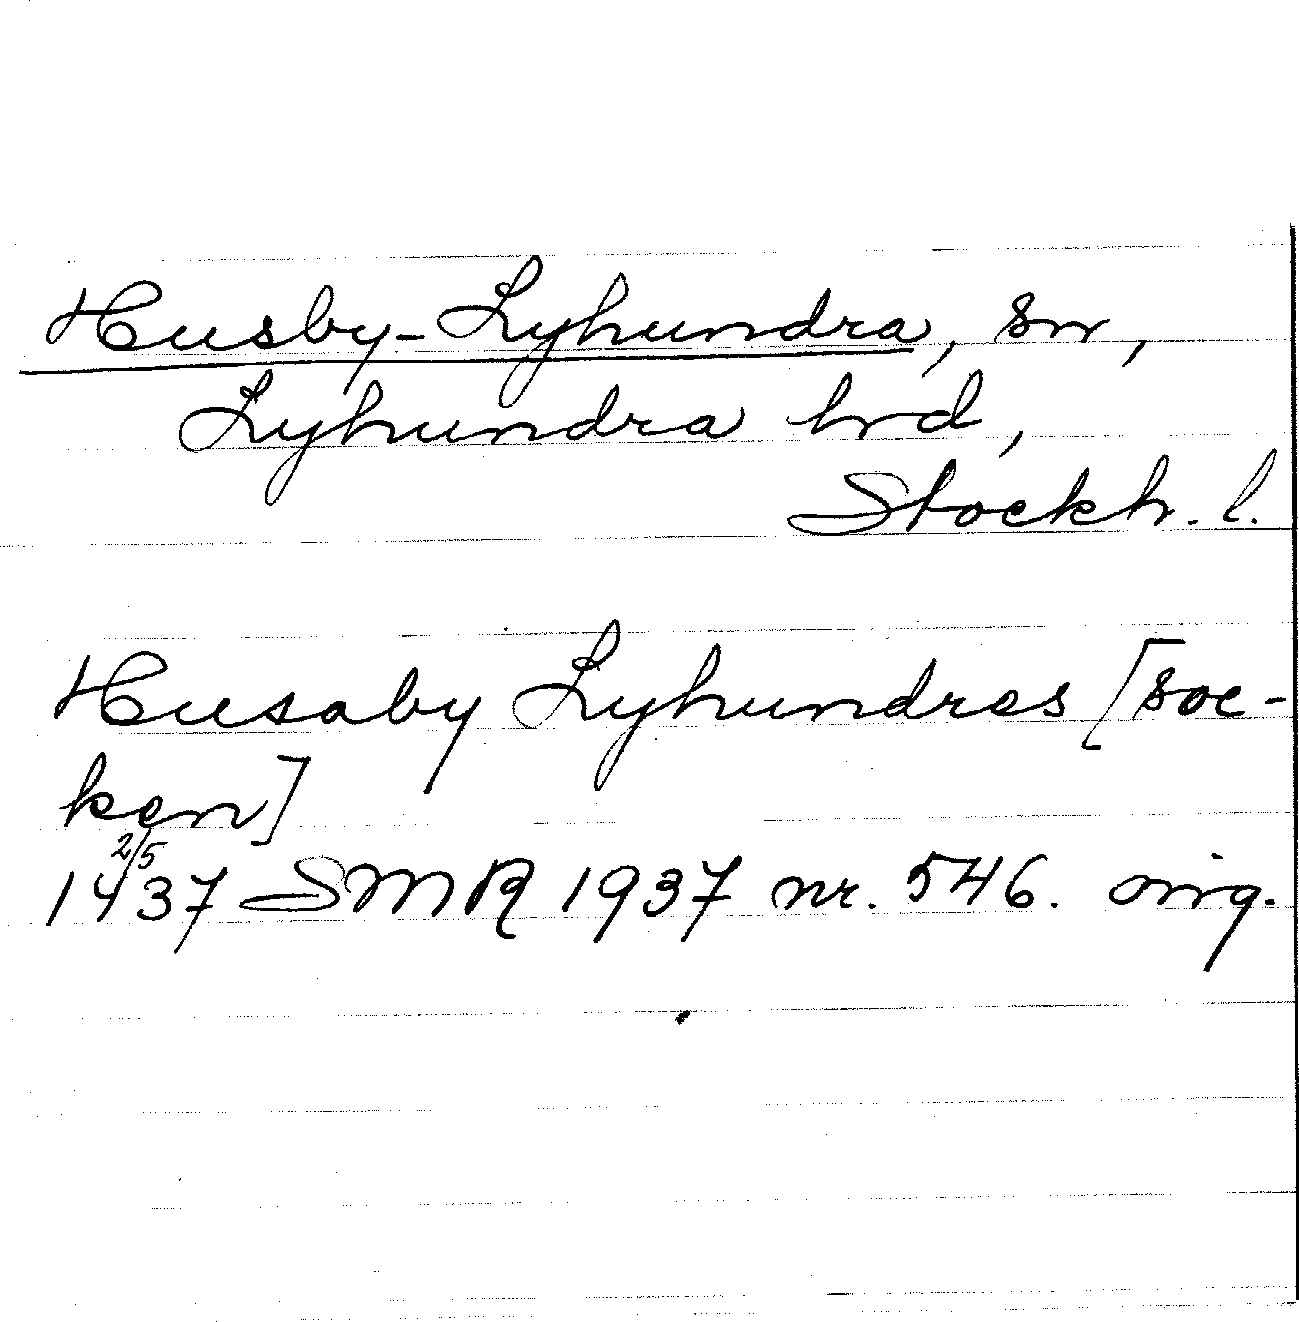 Husby-Lyhundra, sn,
Lyhundra hrd,
Stockh. l.
Husaby Lyhundres [soc-
ken]
2/5
1437 SMR 1937 nr. 546. orig.